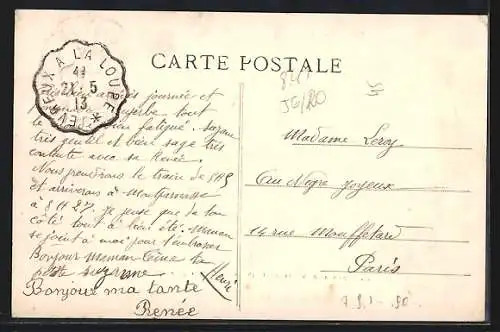 CARTE POSTALE
EVREUX A LA LOUPE
21 - 5
13
journée et
superbe tout
le fatigué. Suzanne
très gentil et bien sage très
contente avec sa Renée.
Nous prendrons le train de 8H9
et arriverons à Montparnasse
à 8H27. Je pense que de ton
côté tout a bien été. Maman
se joint à moi pour t'embrasser
Bonjour maman ta
petite Suzanne
Henri
Bonjour ma tante
Renée
Madame Leroy
Au Nègre Joyeux
14 rue Mouffetard
Paris